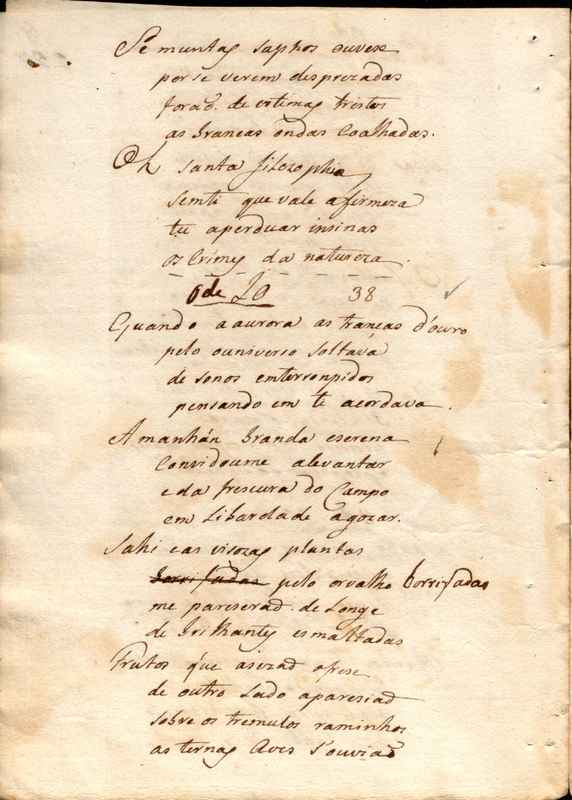 Se muntas saphos ouvese
por se verem desprezadas
foraõ de vitimas tristes
as brancas ondas Coalhadas.
Oh santa filozophia
semti que vale afirmeza
tu aperduar insinas
os Crimes da natureza.
Ode 38
Quando a aurora as trancas d'ouro
pelo ouniverso soltava
de sonos emterronpidos
pensando em te acordava.
A manhán branda eserena
Convidoume alevantar
e da frescura do Campo
em Libardade agozar.
Sahi e as visozas plantas
pelo orvalho borrifadas
me pareseraõ de Longe
de brilhantes esmaltadas
Frutos que
de outro Lado aparesiaõ
sobre os tremulos raminhos
as ternas Aves s'ouviaõ